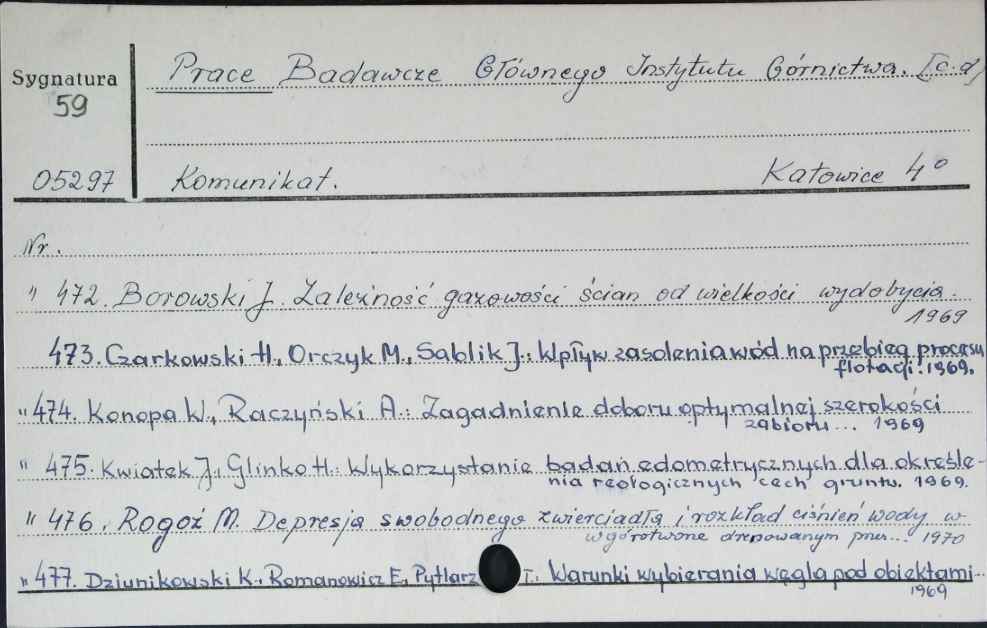 Sygnatura
59
Prace Badawcze Głównego Instytutu Górnictwa. [c.d]
05297
Komunikat.
Katowice 4°
Nr.
" 472. Borowski J. Zależność gazowości ścian od wielkości wydobycia.
1969
473. Czarkowski H., Orczyk M., Sablik J.: Wpływ zasolenia wód na przebieg procesu
flotacji. 1969.
" 474. Konopa W., Raczyński A.: Zagadnienie doboru optymalnej szerokości
zabioru... 1969
" 475. Kwiatek J., Glinko H.: Wykorzystanie badań edometrycznych dla określe-
nia reologicznych cech gruntu. 1969.
" 476. Rogoż M. Depresja swobodnego zwierciadła i rozkład ciśnień wody w
wgórotworze drenowanym przez... 1970
" 477. Dziunikowski K., Romanowicz E., Pytlarz T.: Warunki wybierania węgla pod obiektami...
1969